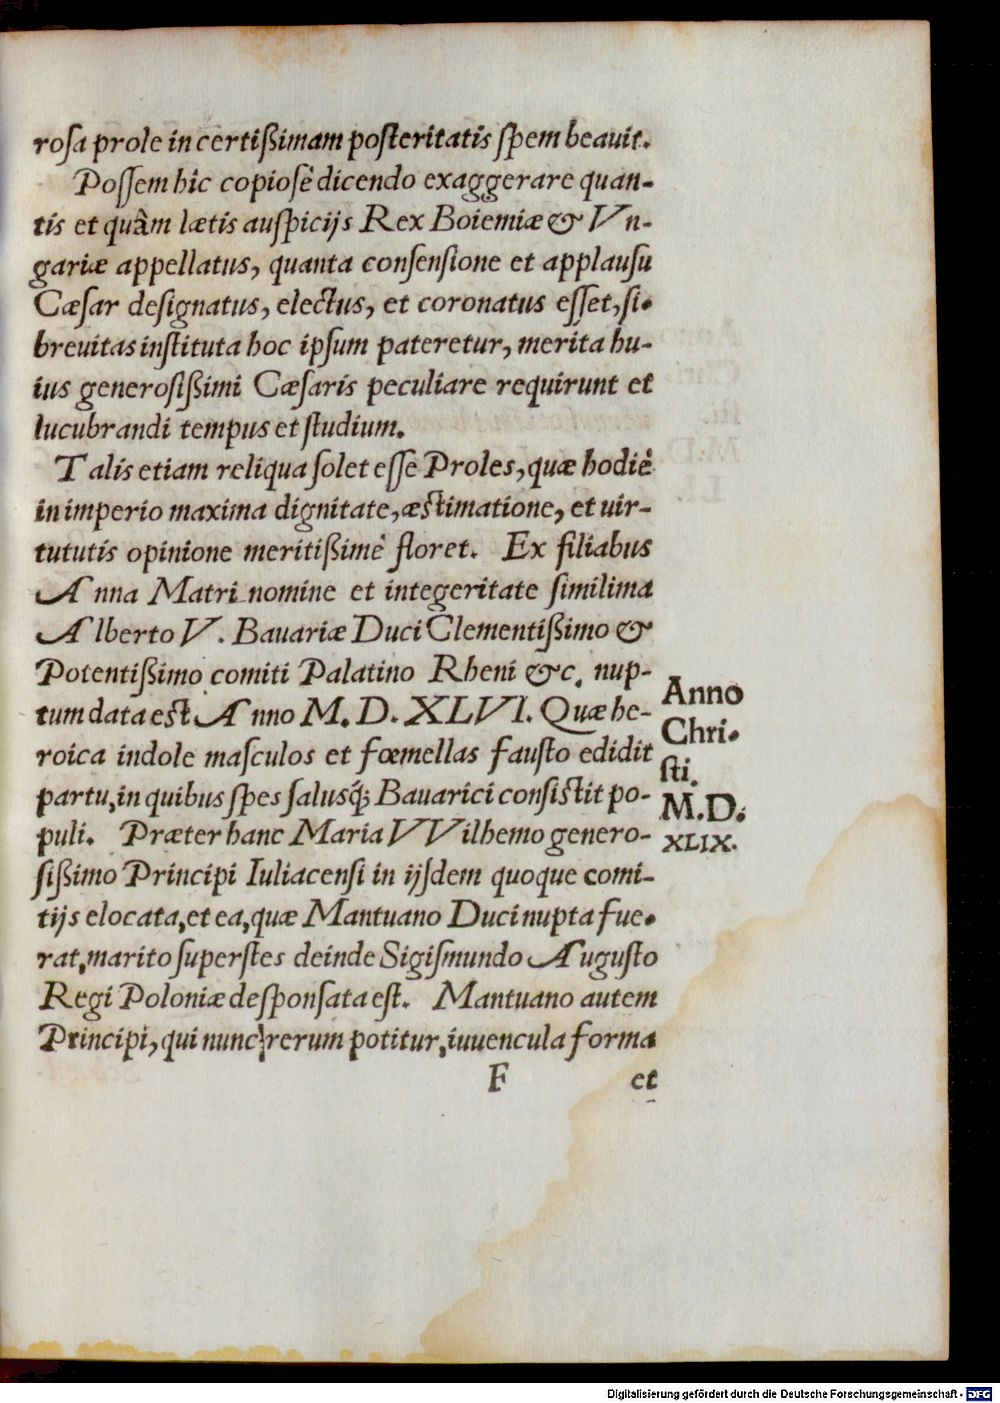 roſa prole in certiſsimam poſteritatis ſpem beauit.
Poſſem hîc copioſè dicendo exaggerare quan-
tis et quàm lætis auſpicijs Rex Boiemiæ & Vn-
gariæ appellatus, quanta conſenſione et applauſu
Cæſar deſignatus, electus, et coronatus eſſet, ſi
breuitas inſtituta hoc ipſum pateretur, merita hu-
ius generoſiſsimi Cæſaris peculiare requirunt et
lucubrandi tempus et ſtudium.
Talis etiam reliqua ſolet eſſe Proles, quæ hodiè
in imperio maxima dignitate, æſtimatione, et uir-
tututis opinione meritiſsimè floret. Ex filiabus
Anna Matri nomine et integeritate ſimilima
Alberto V. Bauariæ Duci Clementiſsimo &
Potentiſsimo comiti Palatino Rheni &c. nup-
tum data eſt Anno M.D.XLVI. Quæ he-
roica indole maſculos et fœmellas fauſto edidit
partu, in quibus ſpes ſalusq́; Bauarici conſiſtit po-
puli. Præter hanc Maria VVilhemo genero-
ſiſsimo Principi Iuliacenſi in ijſdem quoque comi-
tijs elocata, et ea, quæ Mantuano Duci nupta fue-
rat, marito ſuperſtes deinde Sigiſmundo Auguſto
Regi Poloniæ deſponſata eſt. Mantuano autem
Principi, qui nunc rerum potitur, iuuencula forma
F et
Anno
Chri-
ſti.
M.D.
XLIX.
Digitalisierung gefördert durch die Deutsche Forschungsgemeinschaft - DFG